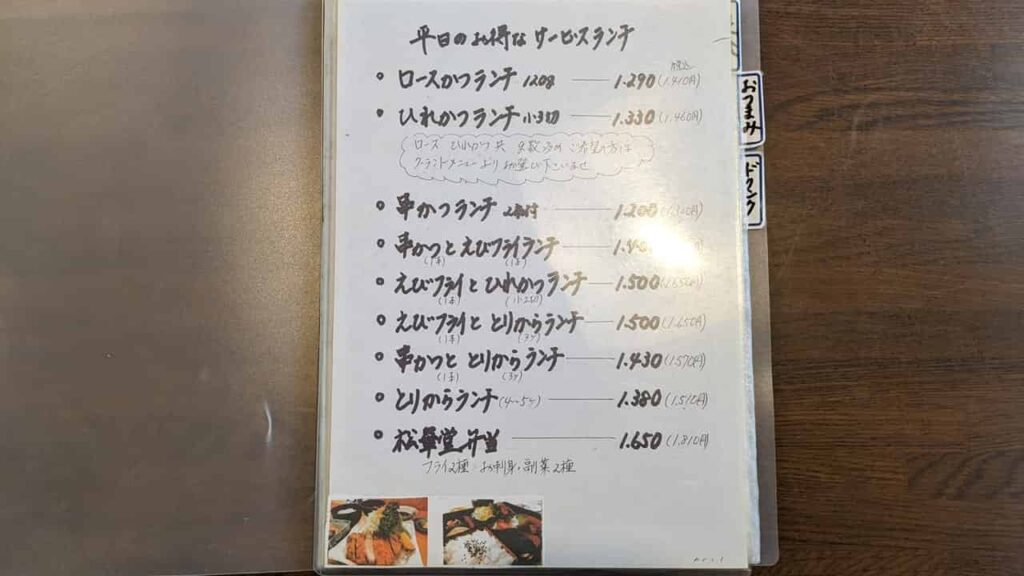 平日のお得なサービスランチ
税込
ロースかつランチ 120g 1.290 (1.410円)
ひれかつランチ 小3切 1.330 (1.460円)
ロース ひれかつ共 ご希望の方は
グランドメニューより お選び下さいませ
串かつランチ 2本付 1.200
串かつとえびフライランチ
(1本) (1本)
えびフライとひれかつランチ 1.500 (1.650円)
(1本) (小2切)
えびフライととりからランチ 1.500 (1.650円)
(1本) (3ケ)
串かつととりからランチ 1.430 (1.570円)
(1本) (3ケ)
とりからランチ (4〜5ケ) 1.380 (1.510円)
松華堂弁当 1.650 (1.810円)
フライ2種・お刺身・副菜2種
おつまみ
ドリンク